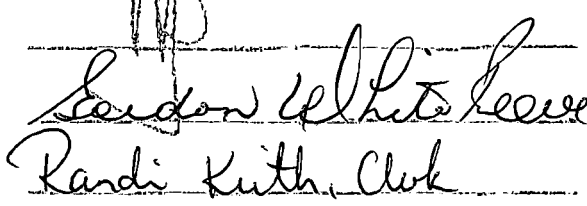 Gordon White, Reeve
Randi Keith, Clerk